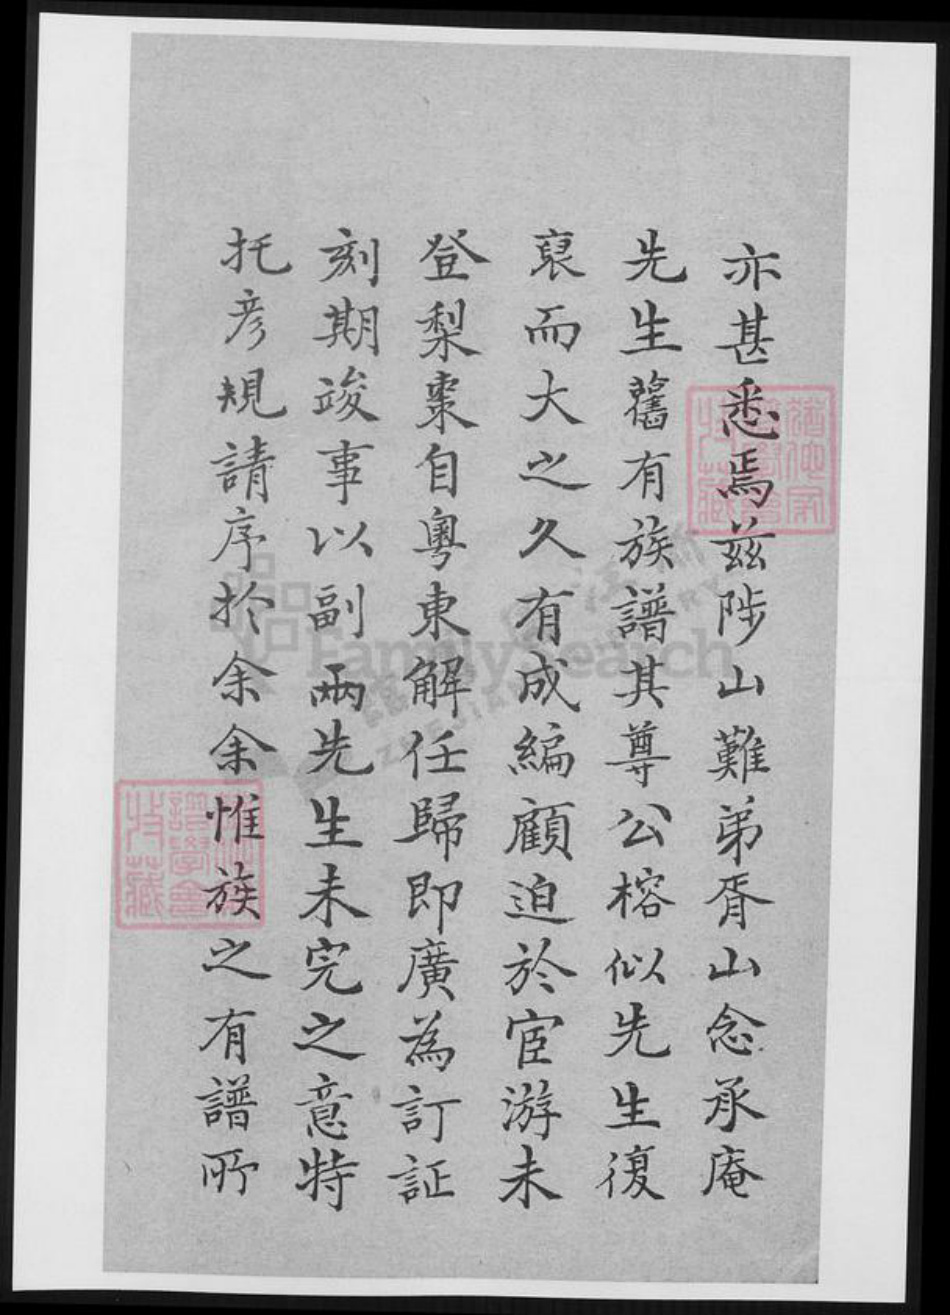 亦甚悉焉茲陟山難弟胥山念承庵
先生舊有族譜其尊公榕似先生復
裒而大之久有成編顧迫於宦游未
登梨棗自粵東解任歸即廣為訂証
刻期竣事以副兩先生未完之意特
托彦規請序於余余惟族之有譜所
FamilySearch